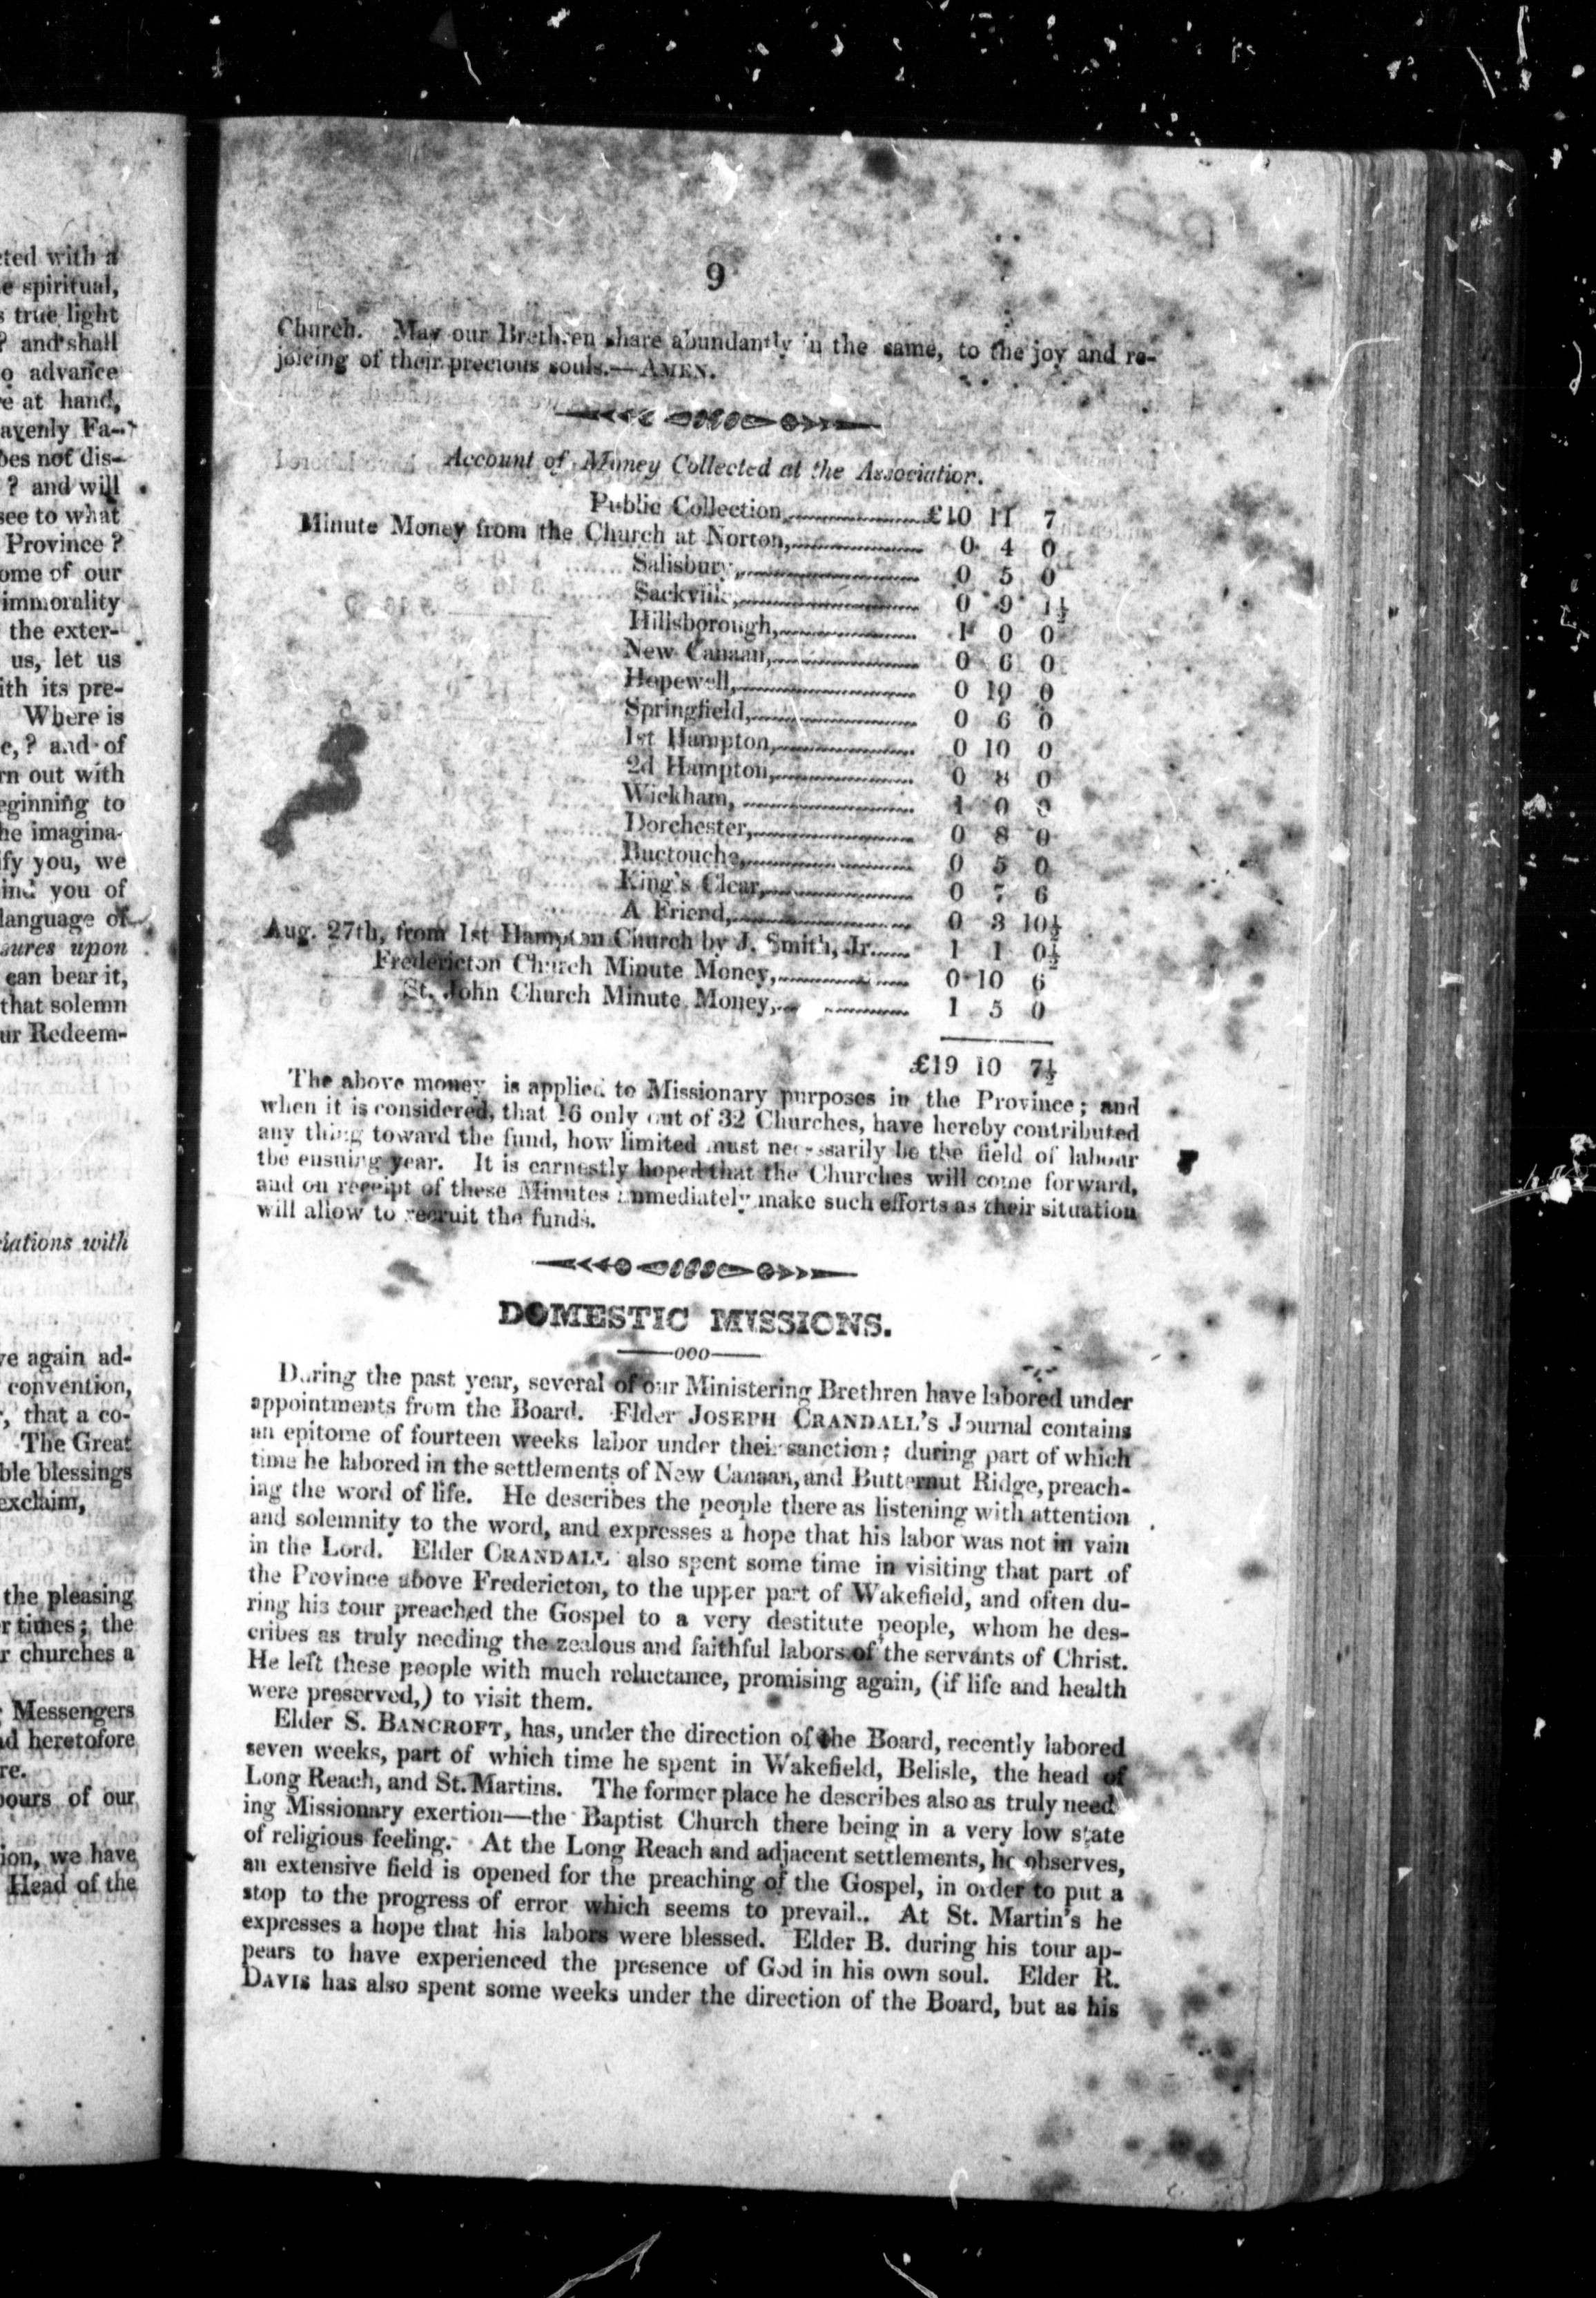 cted with a
e spiritual,
s true light
? and shall
o advance
e at hand,
avenly Fa-
oes not dis-
? and will
see to what
Province ?
ome of our
immorality
the exter-
us, let us
ith its pre-
Where is
e, ? and of
rn out with
eginning to
he imagina-
ify you, we
ind you of
language of
sures upon
can bear it,
that solemn
ur Redeem-
iations with
ve again ad-
convention,
, that a co-
The Great
ble blessings
exclaim,
the pleasing
r times ; the
r churches a
Messengers
d heretofore
re.
bours of our
ion, we have
Head of the
9
Church. May our Brethren share abundantly in the same, to the joy and re-
joicing of their precious souls.—AMEN.
Account of Money Collected at the Association.
Public Collection, £10 11 7
Minute Money from the Church at Norton, 0 4 0
Salisbury, 0 5 0
Sackville, 0 9 1½
Hillsborough, 1 0 0
New Canaan, 0 6 0
Hopewell, 0 10 0
Springfield, 0 6 0
1st Hampton, 0 10 0
2d Hampton, 0 8 0
Wickham, 1 0 0
Dorchester, 0 8 0
Buctouche, 0 5 0
King's Clear, 0 7 6
A Friend, 0 3 10½
Aug. 27th, from 1st Hampton Church by J. Smith, Jr. 1 1 0½
Fredericton Church Minute Money, 0 10 6
St. John Church Minute Money, 1 5 0
£19 10 7½
The above money is applied to Missionary purposes in the Province ; and
when it is considered, that 16 only out of 32 Churches, have hereby contributed
any thing toward the fund, how limited must necessarily be the field of labour
the ensuing year. It is earnestly hoped that the Churches will come forward,
and on receipt of these Minutes immediately make such efforts as their situation
will allow to recruit the funds.
DOMESTIC MISSIONS.
ooo
During the past year, several of our Ministering Brethren have labored under
appointments from the Board. Elder JOSEPH CRANDALL'S Journal contains
an epitome of fourteen weeks labor under their sanction ; during part of which
time he labored in the settlements of New Canaan, and Butternut Ridge, preach-
ing the word of life. He describes the people there as listening with attention
and solemnity to the word, and expresses a hope that his labor was not in vain
in the Lord. Elder CRANDALL also spent some time in visiting that part of
the Province above Fredericton, to the upper part of Wakefield, and often du-
ring his tour preached the Gospel to a very destitute people, whom he des-
cribes as truly needing the zealous and faithful labors of the servants of Christ.
He left these people with much reluctance, promising again, (if life and health
were preserved,) to visit them.
Elder S. BANCROFT, has, under the direction of the Board, recently labored
seven weeks, part of which time he spent in Wakefield, Belisle, the head of
Long Reach, and St. Martins. The former place he describes also as truly need
ing Missionary exertion—the Baptist Church there being in a very low state
of religious feeling. At the Long Reach and adjacent settlements, he observes,
an extensive field is opened for the preaching of the Gospel, in order to put a
stop to the progress of error which seems to prevail.. At St. Martin's he
expresses a hope that his labors were blessed. Elder B. during his tour ap-
pears to have experienced the presence of God in his own soul. Elder R.
DAVIS has also spent some weeks under the direction of the Board, but as his